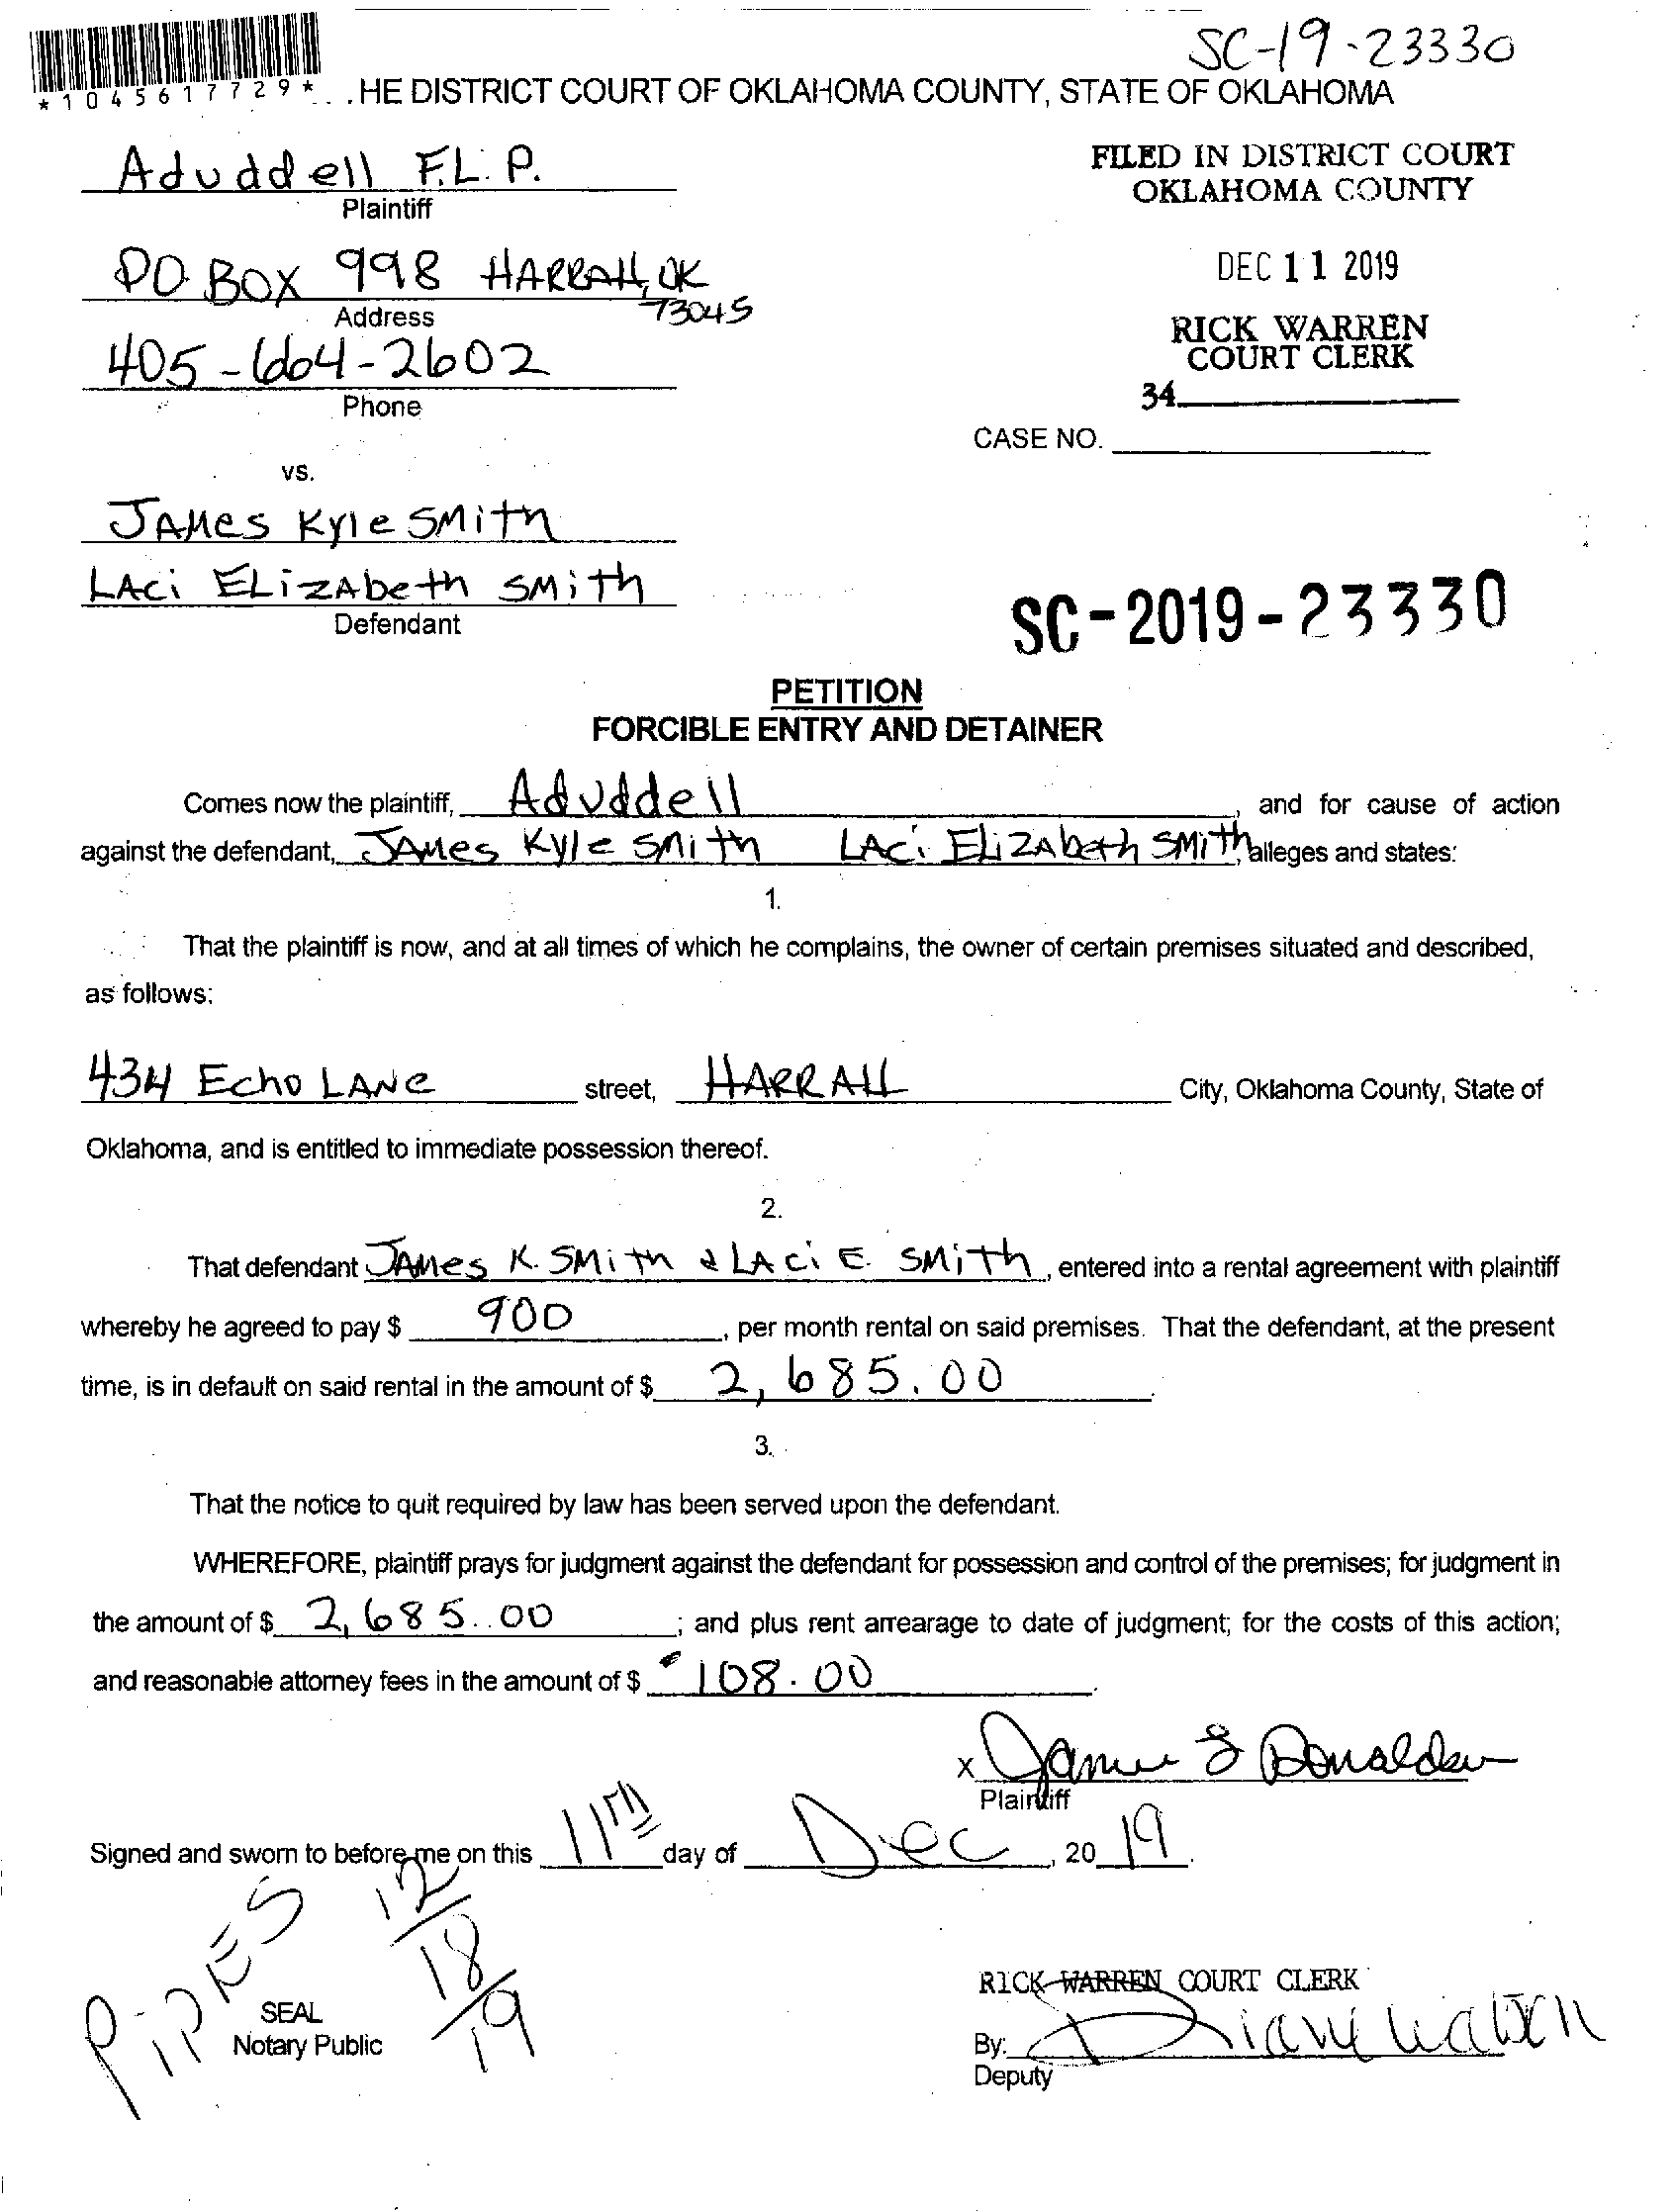 SC-19-23330
*1045617729*
HE DISTRICT COURT OF OKLAHOMA COUNTY, STATE OF OKLAHOMA
Aduddell F.L.P.
Plaintiff
FILED IN DISTRICT COURT
OKLAHOMA COUNTY
PO BOX 998 HARRAH, OK
73045
Address
DEC 11 2019
405-664-2602
Phone
RICK WARREN
COURT CLERK
34
CASE NO.
vs.
JAMes Kyle SMith
LAci ELizAbeth SMith
Defendant
SC-2019-23330
PETITION
FORCIBLE ENTRY AND DETAINER
Comes now the plaintiff, Aduddell, and for cause of action
against the defendant, JAMes Kyle SMith LAci ELizAbeth SMith, alleges and states:
1.
That the plaintiff is now, and at all times of which he complains, the owner of certain premises situated and described,
as follows:
434 Echo LANe street, HARRAH City, Oklahoma County, State of
Oklahoma, and is entitled to immediate possession thereof.
2.
That defendant JAMes K. SMith & LAci E. SMith, entered into a rental agreement with plaintiff
whereby he agreed to pay $ 900, per month rental on said premises. That the defendant, at the present
time, is in default on said rental in the amount of $ 2,685.00.
3.
That the notice to quit required by law has been served upon the defendant.
WHEREFORE, plaintiff prays for judgment against the defendant for possession and control of the premises; for judgment in
the amount of $ 2,685.00; and plus rent arrearage to date of judgment; for the costs of this action;
and reasonable attorney fees in the amount of $ 108.00.
x
Plaintiff
Signed and sworn to before me on this 11th day of Dec, 2019.
PiPKES
12/18/19
SEAL
Notary Public
RICK WARREN COURT CLERK
By:
Deputy